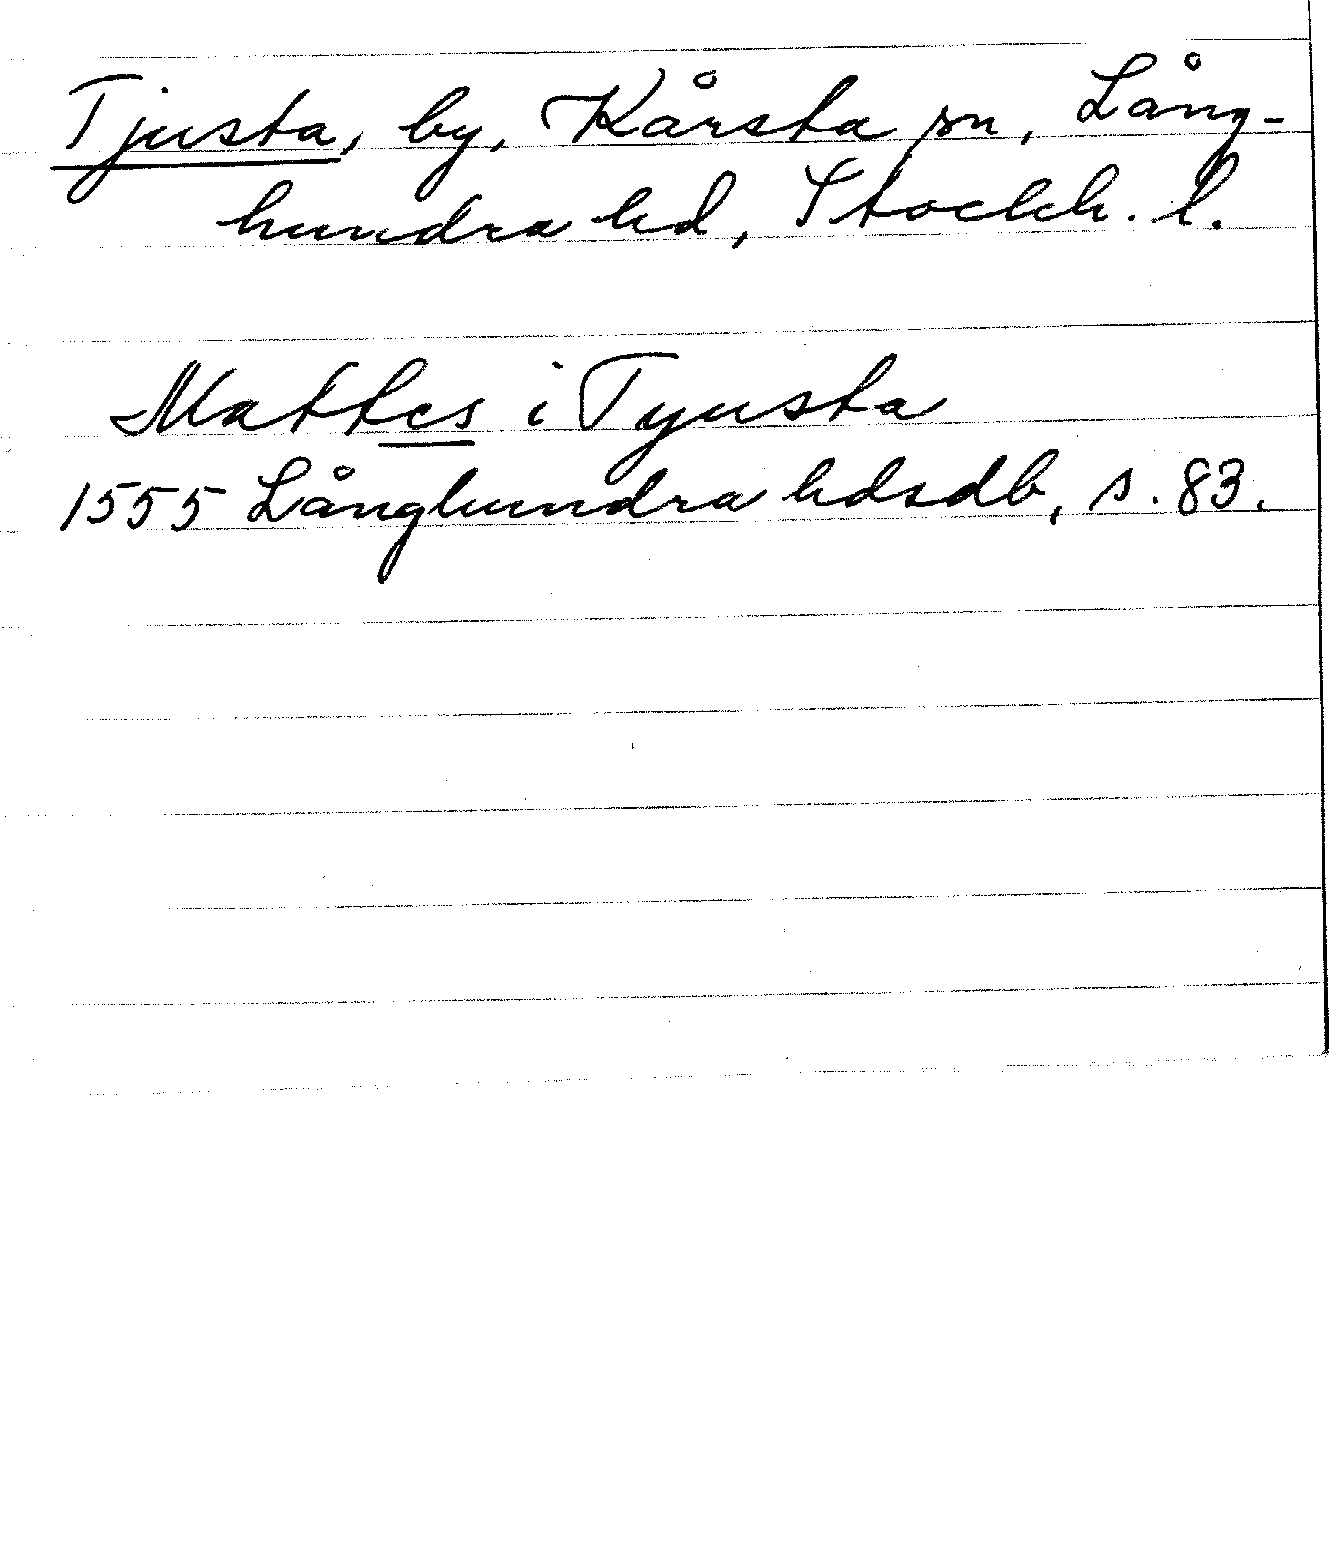 Tjusta, by, Kårsta sn, Lång-
hundra hd, Stockh. l.
Mattes i Tyusta
1555 Långhundra hdsdb, s. 83.